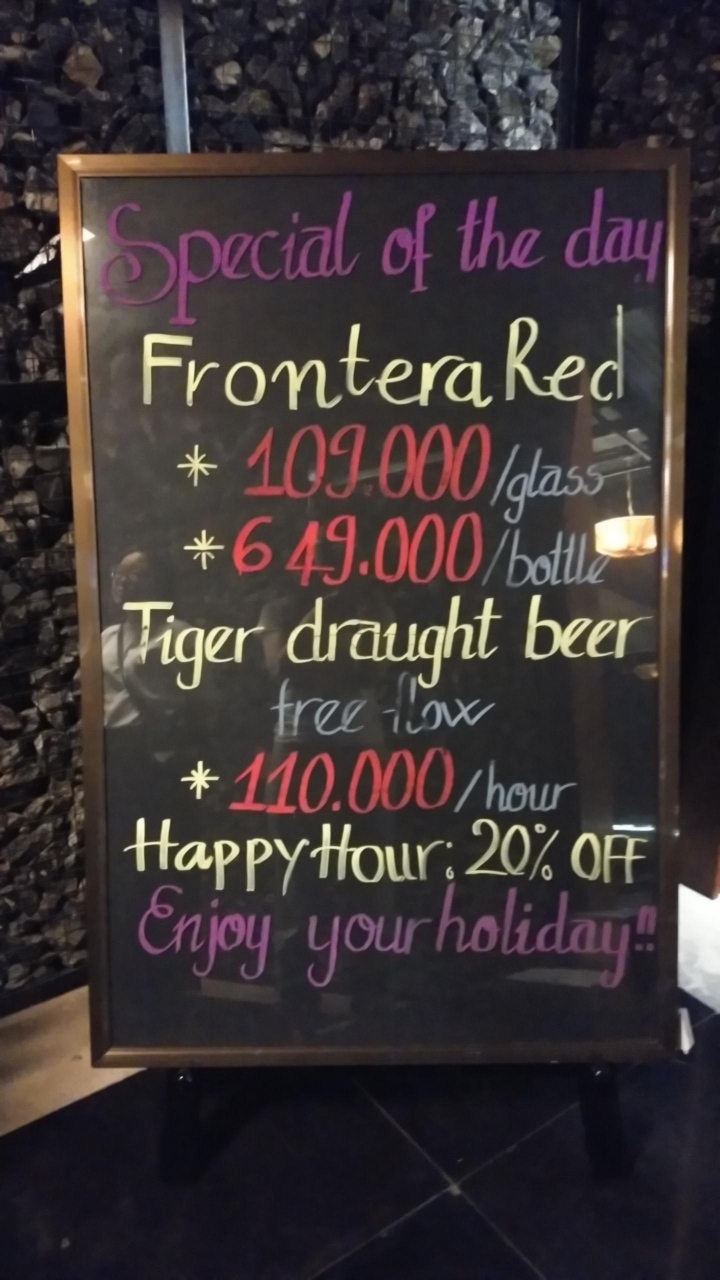 Special of the day
Frontera Red
* 109.000/glass
* 649.000/bottle
Tiger draught beer
free flow
* 110.000/hour
Happy Hour: 20% OFF
Enjoy your holiday!!